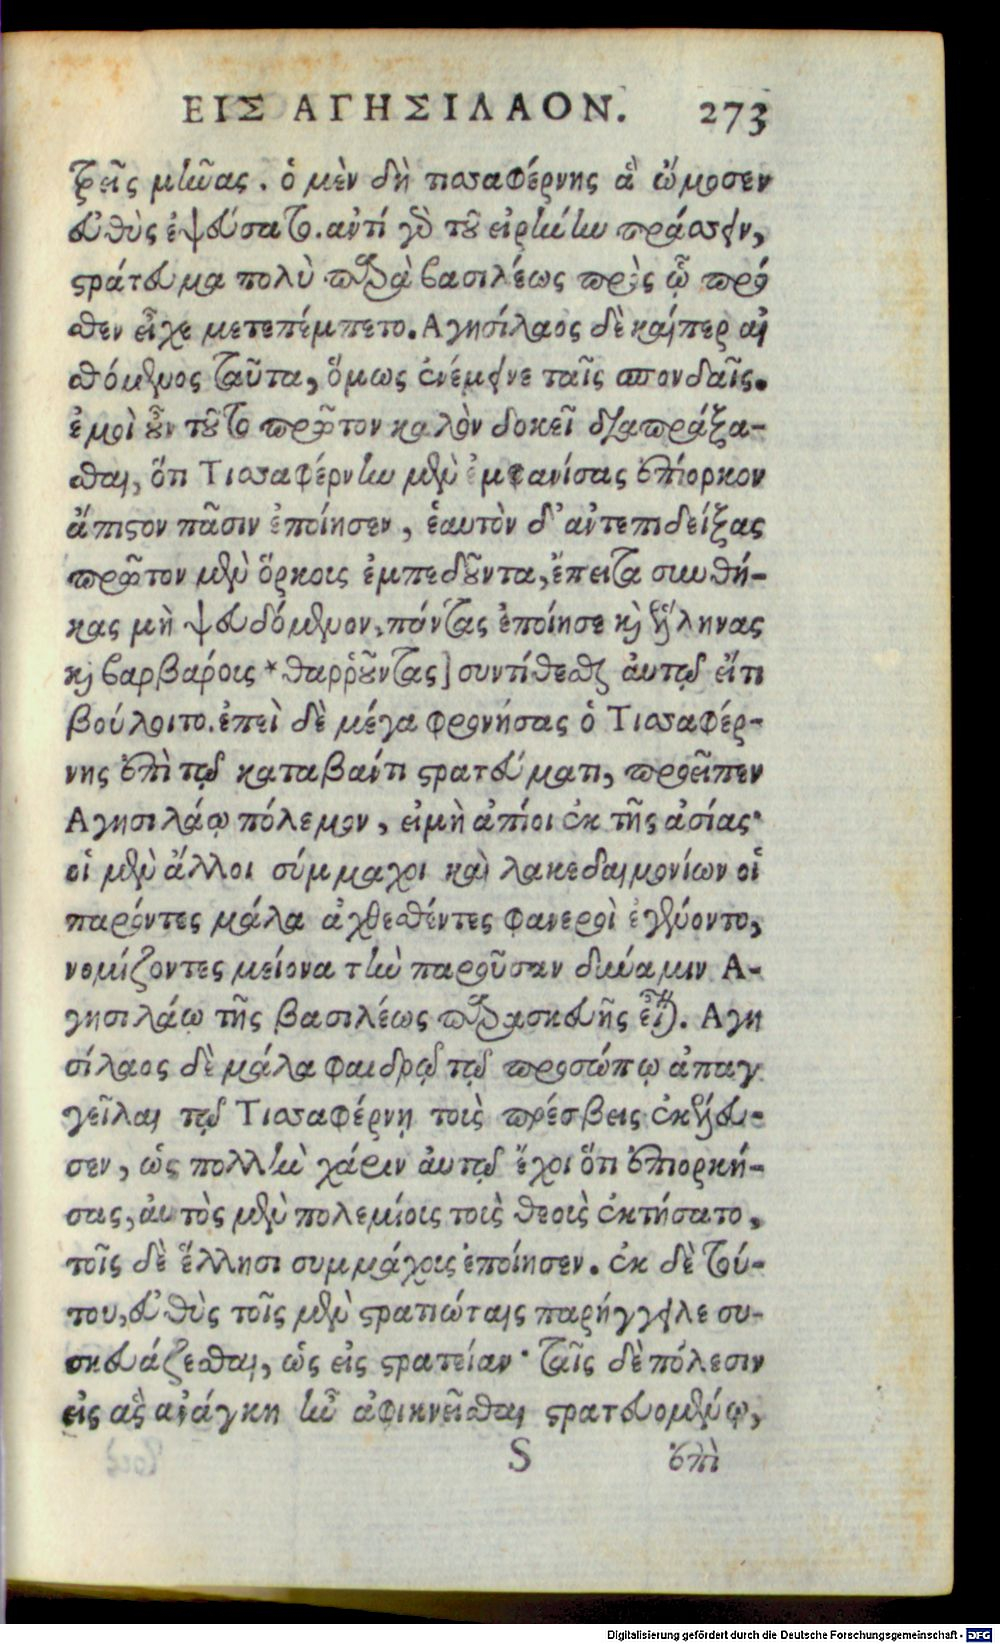 ΕΙΣ ΑΓΗΣΙΛΑΟΝ. 273
τρεῖς μῆνας. ὁ μὲν δὴ τισσαφέρνης ἃ ὤμοσεν
εὐθὺς ἐψεύσατο. ἀντὶ γὸ τοῦ εἰρήνην πράσσειν,
στράτευμα πολὺ παρὰ βασιλέως πρὸς ᾧ πρό
σθεν εἶχε μετεπέμπετο. Αγησίλαος δὲ καίπερ αἰ
σθόμενος ταῦτα, ὅμως ἐνέμεινε ταῖς σπονδαῖς.
ἐμοὶ οὖν τοῦτο πρῶτον καλὸν δοκεῖ διαπράξα-
σθαι, ὅτι Τισσαφέρνην μὲν ἐμφανίσας ἐπίορκον
ἄπιστον πᾶσιν ἐποίησεν, ἑαυτὸν δ' ἀντεπιδείξας
πρῶτον μὲν ὅρκοις ἐμπεδοῦντα, ἔπειτα συνθή-
κας μὴ ψευδόμενον, πάντας ἐποίησε καὶ ἕλληνας
καὶ βαρβάροις * θαρῥοῦντας] συντίθεσθαι αὐτῷ εἴ τι
βούλοιτο. ἐπεὶ δὲ μέγα φρονήσας ὁ Τισσαφέρ-
νης ἐπὶ τῷ καταβάντι στρατεύματι, προεῖπεν
Αγησιλάῳ πόλεμον, εἰ μὴ ἀπίοι ἐκ τῆς ἀσίας·
οἱ μὲν ἄλλοι σύμμαχοι καὶ λακεδαιμονίων οἱ
παρόντες μάλα ἀχθεσθέντες φανεροὶ ἐγένοντο,
νομίζοντες μείονα τὴν παροῦσαν δύναμιν Α-
γησιλάῳ τῆς βασιλέως παρασκευῆς εἶναι. Αγη
σίλαος δὲ μάλα φαιδρῷ τῷ προσώπῳ ἀπαγ
γεῖλαι τῷ Τισσαφέρνῃ τοὺς πρέσβεις ἐκέλευ-
σεν, ὡς πολλὴν χάριν αὐτῷ ἔχοι ὅτι ἐπιορκή-
σας, αὐτὸς μὲν πολεμίοις τοὺς θεοὺς ἐκτήσατο,
τοῖς δὲ ἕλλησι συμμάχοις ἐποίησεν. ἐκ δὲ τού-
του, εὐθὺς τοῖς μὲν στρατιώταις παρήγγειλε συ-
σκευάζεσθαι, ὡς εἰς στρατείαν· ταῖς δὲ πόλεσιν
εἰς ἃς ἀνάγκη ἦν ἀφικνεῖσθαι στρατευομένῳ,
S ἐπὶ
Digitalisierung gefördert durch die Deutsche Forschungsgemeinschaft - DFG